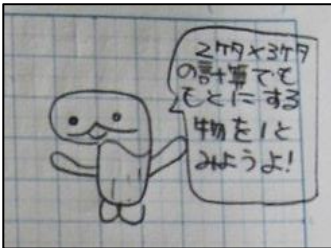 2ケタ×3ケタ
の計算でも
もとにする
物を1と
みようよ!